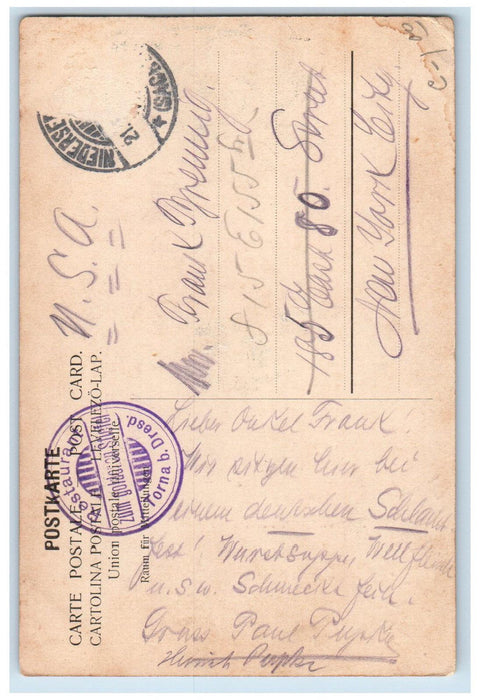 POSTKARTE
CARTE POSTALE. POST CARD.
CARTOLINA POSTALE. LEVELEZŐ-LAP.
Union postale universelle.
Raum für Mitteilungen
U.S.A.
NIEDERSE
21.
Restaurant
zum goldenen
Torna b. Dresd.
Frank
815 E 155
185 East 80. Street
New York City
Lieber Onkel Frank!
Wir sitzen hier bei
einem deutschen Schlacht
fest! Wurstsuppe, Wellfleisch
u.s.w. Schmeckt fein.
Gruss Paul Pupke
Heinrich Pupke